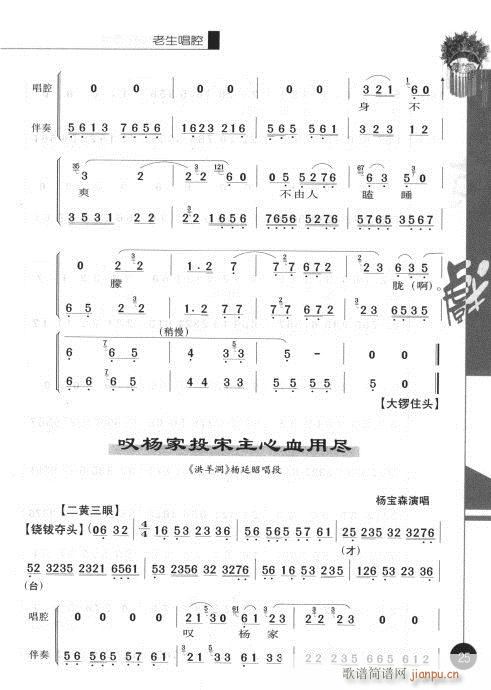 老生唱腔
唱腔 0 0 0 0 0 0 0 0 321 1 60
身 不
伴奏 5613 7656 1623 216 565 561 323 12
35 3 2 2 2 121 60 05 5276 3 67 5 3 50
爽 不由人 瞌 睡
3 531 22 3 22 1656 7656 5276 5765 3567
0 3 2 2 1·2 7 7 7 7 672 2 3 2 635
朦 胧(啊)。
65 65 3 2 2 1·2 77 77 672 23 6535
(稍慢)
6 7 65 4 33 5 - 0 0
66 7 65 44 33 55 55 0 0
【大锣住头】
叹杨家投宋主心血用尽
《洪羊洞》杨延昭唱段
杨宝森演唱
【二黄三眼】
【铙钹夺头】(06 32 4/4 16 53 23 36 56 565 57 61 25 235 32 3276
(才)
52 3235 2321 6561 53 2356 32 32 35 235 32 3276 126 53 23 36
(台)
唱腔 0 0 0 0 0 0 0 0 21 30 5 61 5 23
叹 杨 家
伴奏 56 565 57 61 56 565 57 61 35 235 21 61 21 23 61 23
25
歌谱简谱网
jianpu.cn